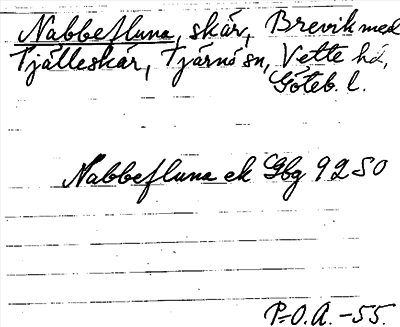 Nabbefluna, skär, Brevik med
Tjälleskär, Tjärnö sn, Vette hd,
Göteb. l.
Nabbefluna ek Gbg 92 SO
P-O.A. -55.